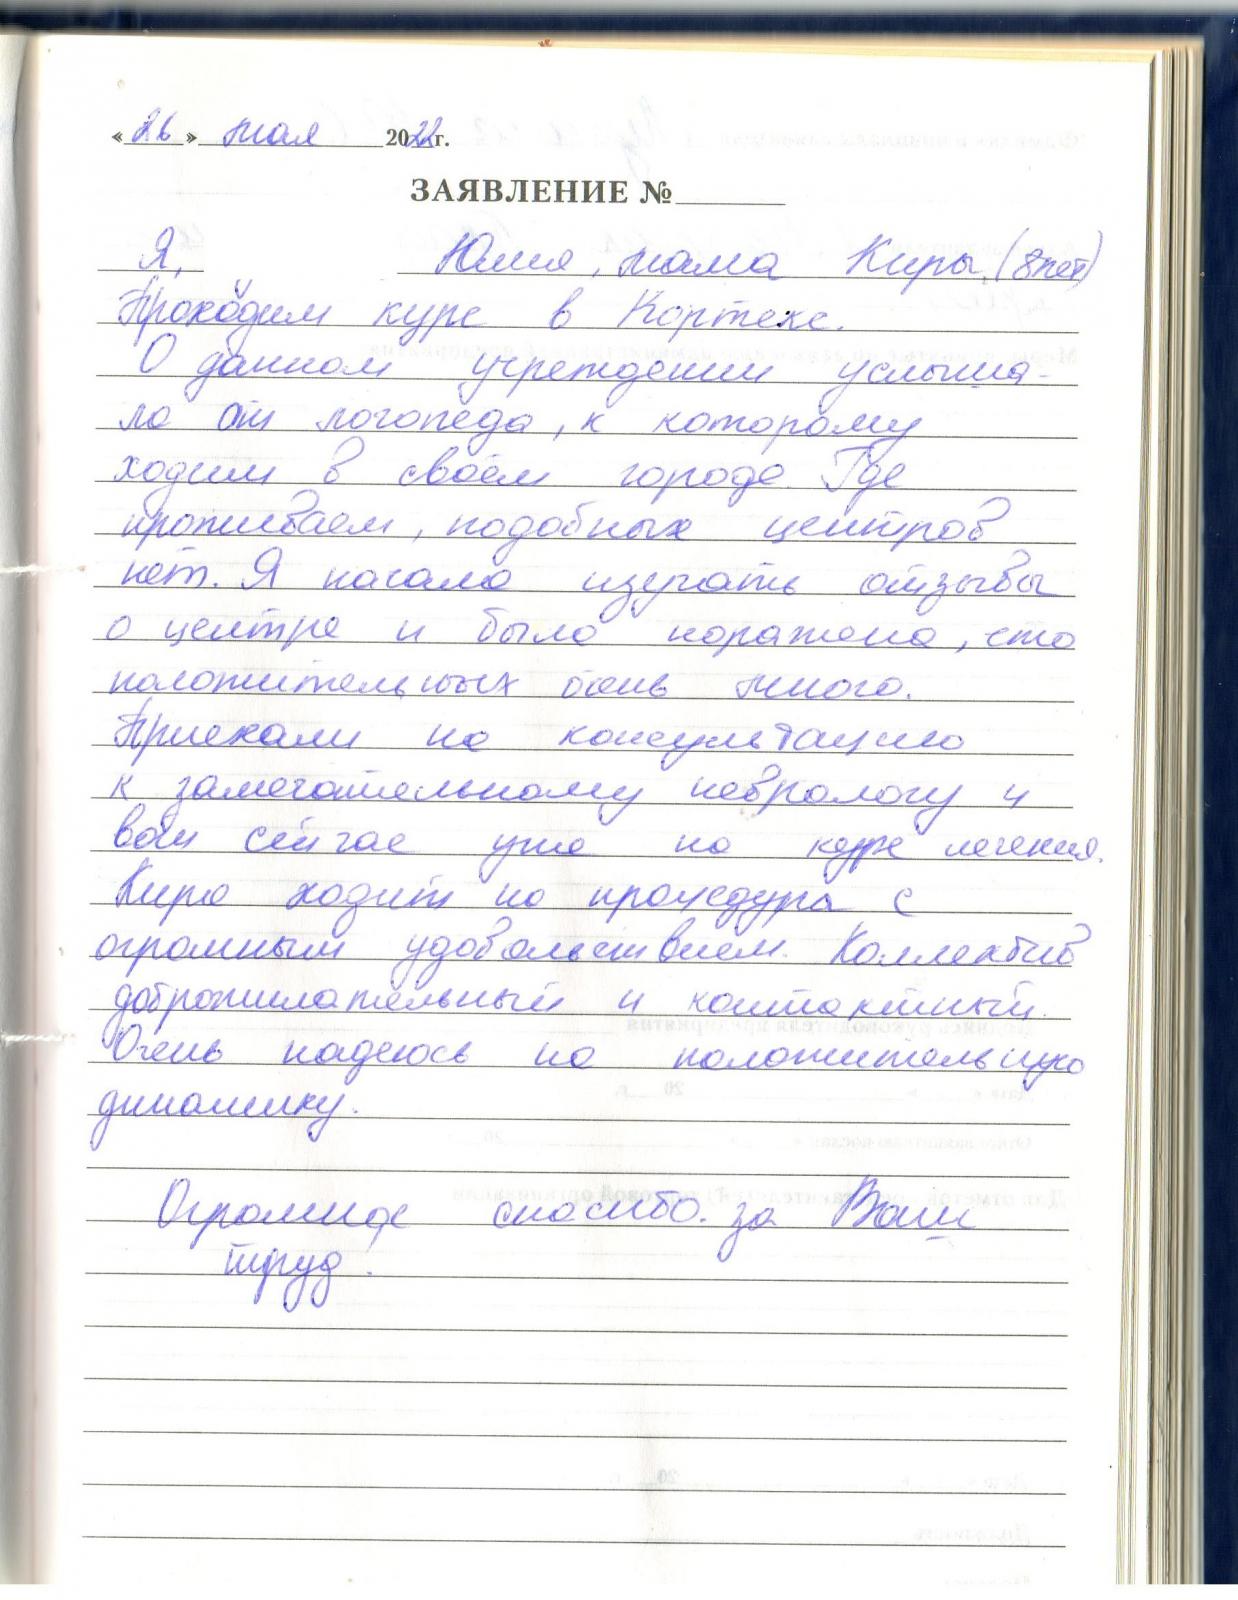 «26» мая 2022 г.
ЗАЯВЛЕНИЕ №
Я, Юлия, мама Киры, (8 лет)
Проходим курс в Кортекс.
О данном учреждении услыша-
ла от логопеда, к которому
ходим в своём городе. Где
проживаем, подобных центров
нет. Я начала изучать отзывы
о центре и была поражена, что
положительных очень много.
Приехали на консультацию
к замечательному неврологу и
вот сейчас уже на курсе лечения.
Кира ходит на процедура с
огромным удовольствием. Коллектив
доброжилательный и контактный.
Очень надеюсь на положительную
динамику.
Огромное спасибо за Ваш
труд.